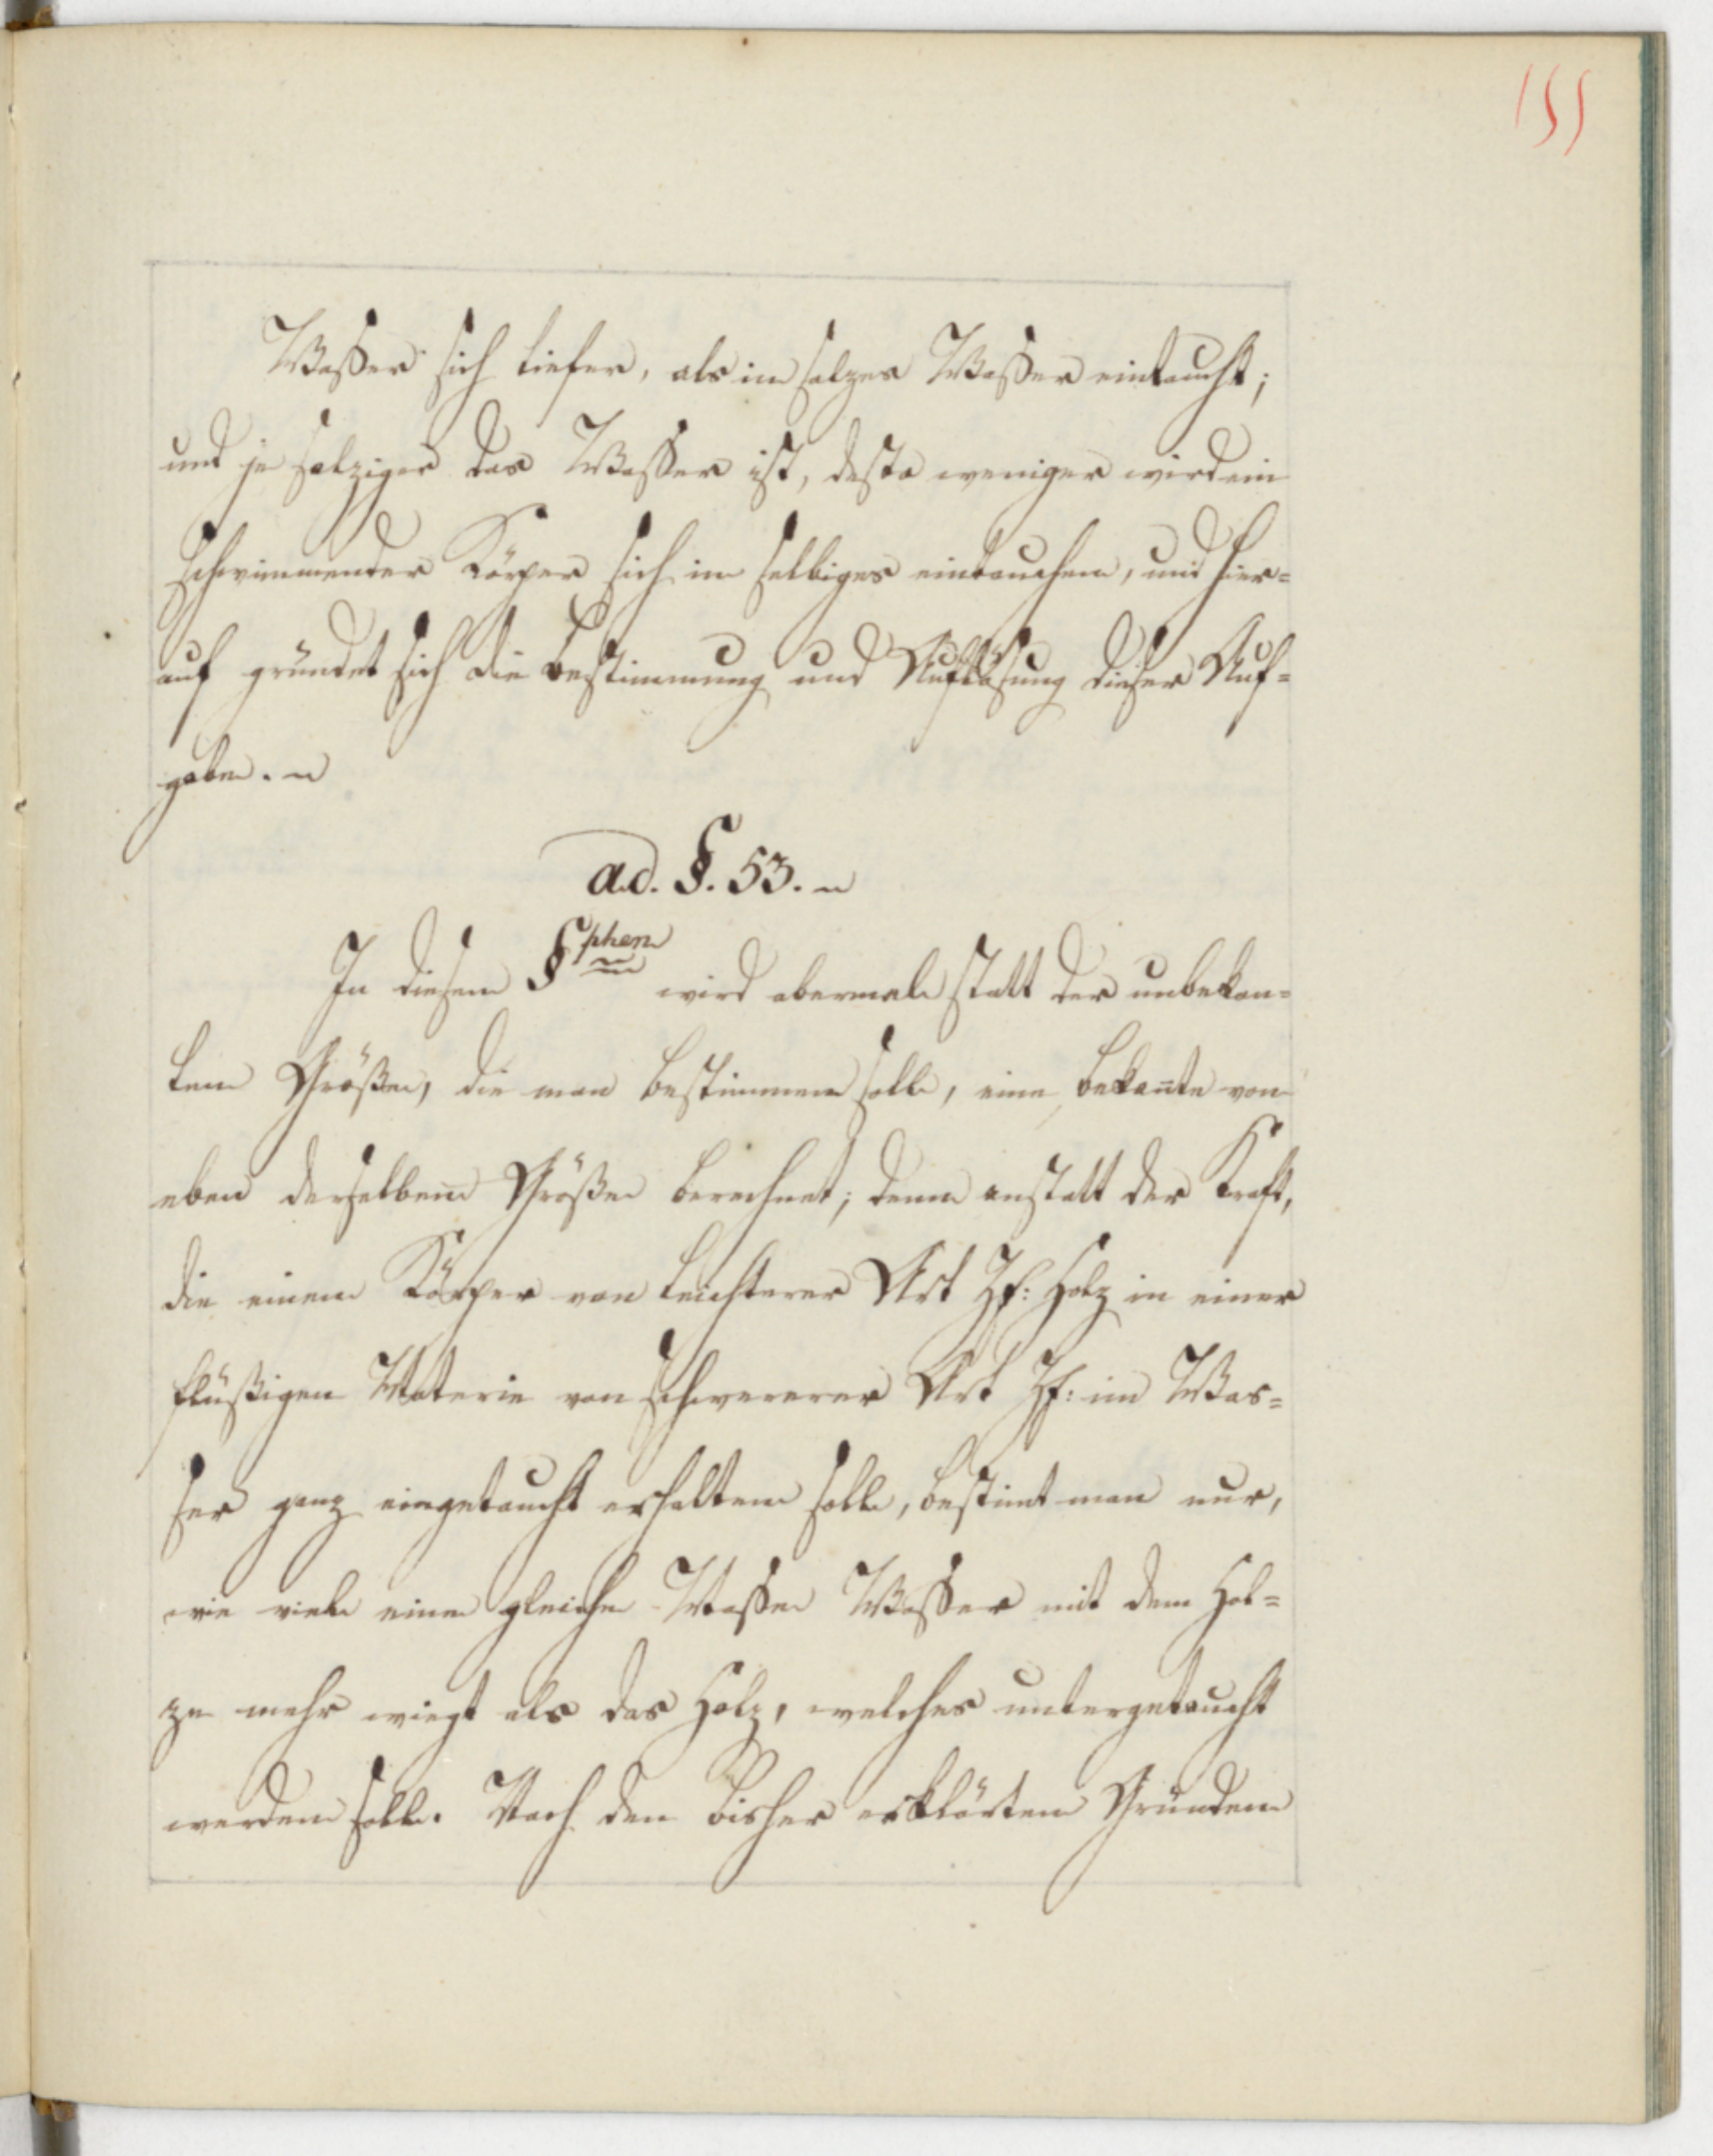 155
Waßer sich tiefer, als im salzen Waßer eintaucht;
und je salziger das Waßer ist, desto weniger wird ein
schwimmender Körper sich in selbiges eintauchen, und hier=
auf gründet sich die Bestimmung und Auflösung dieser Auf=
gabe.
ad. §. 53.
In diesem §phen wird abermals statt der unbekan=
ten Größe, die man bestimmen solle, eine bekante von
eben derselben Größe berechnet; denn anstatt der Kraft,
die einen Körper von leichterer Art Zf: Holz in einer
flüßigen Materie von schwererer Art Zf: im Was=
ser ganz eingetaucht erhalten solle, bestimt man nur,
wie viele eine gleiche Masse Waßer mit dem Hol=
ze mehr wiegt als das Holz, welches untergetaucht
werden solle. Nach den bisher erklärten Gründen